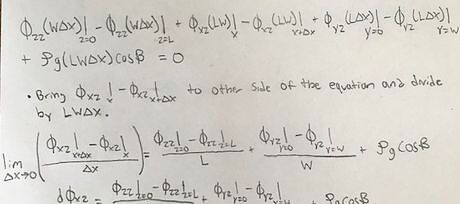 ϕzz(WΔx)|z=0 - ϕzz(WΔx)|z=L + ϕxz(LW)|x - ϕxz(LW)|x+Δx + ϕyz(LΔx)|y=0 - ϕyz(LΔx)|y=W
+ ρg(LWΔx)cosβ = 0
• Bring ϕxz|x - ϕxz|x+Δx to other side of the equation and divide
by LWΔx.
lim Δx→0 (ϕxz|x+Δx - ϕxz|x / Δx) = ϕzz|z=0 - ϕzz|z=L / L + ϕyz|y=0 - ϕyz|y=W / W + ρg cosβ
dϕxz = ϕzz|z=0 - ϕzz|z=L + ϕyz|y=0 - ϕyz|y=W ρg cosβ